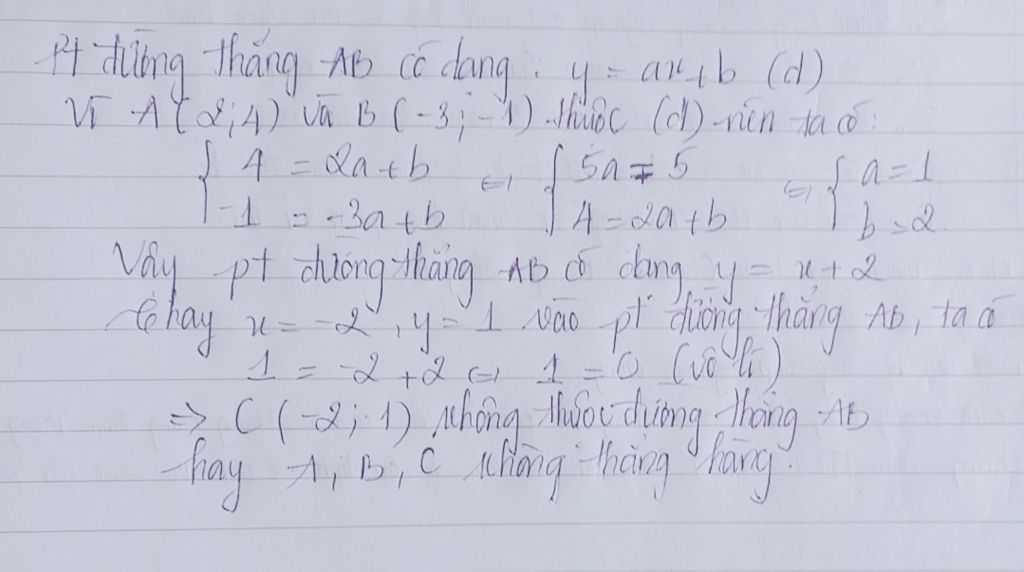 Pt đường thẳng AB có dạng: y = ax+b (d)
Vì A(2;4) và B(-3;-1) thuộc (d) nên ta có:
{ 4 = 2a+b ⇔ { 5a = 5 ⇔ { a=1
-1 = -3a+b 4=2a+b b=2
Vậy pt đường thẳng AB có dạng y = x+2
Thay x=-2, y=1 vào pt đường thẳng AB, ta có
1 = -2+2 ⇔ 1=0 (vô lí)
=> C(-2;1) không thuộc đường thẳng AB
hay A, B, C không thẳng hàng.